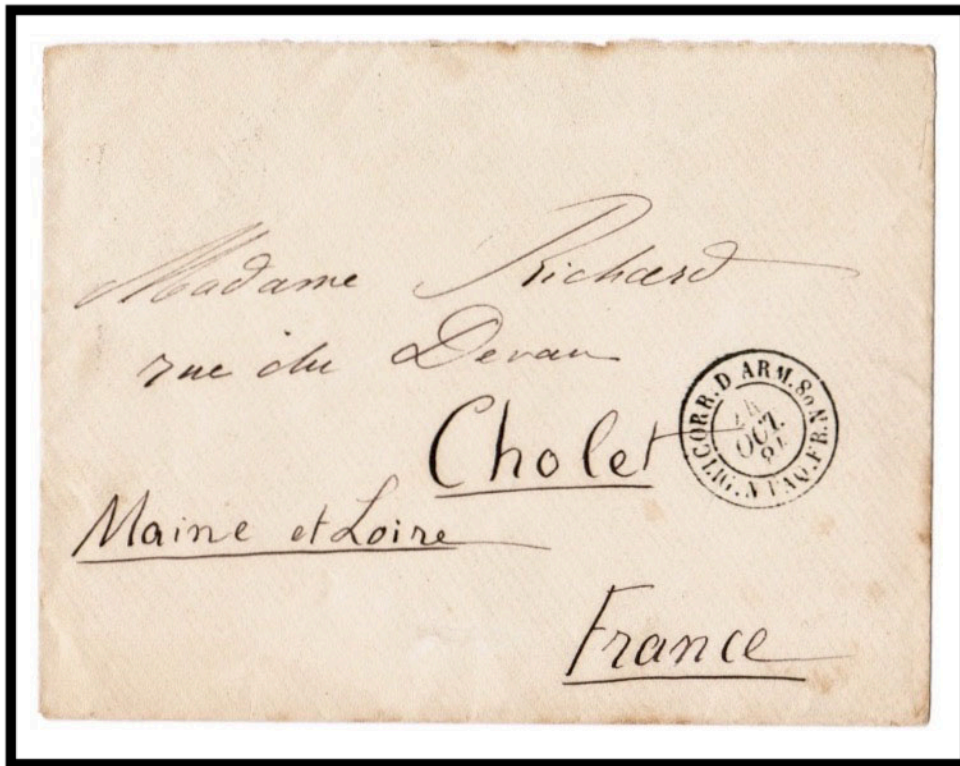 Madame Richard
rue du Devau
Cholet
Maine et Loire
France
CORR. D ARM.
LIG. N PAQ. FR. N
24
OCT.